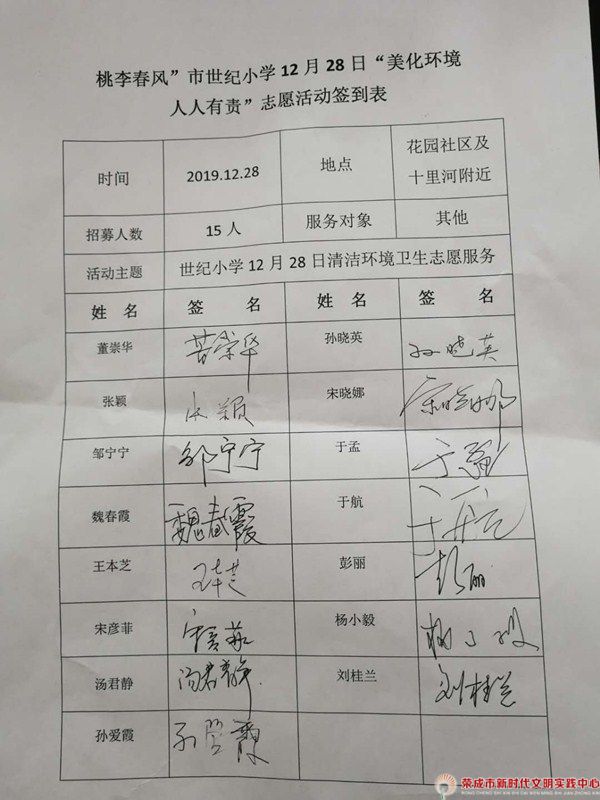 桃李春风”市世纪小学12月28日“美化环境
人人有责”志愿活动签到表
时间 2019.12.28 地点 花园社区及
十里河附近
招募人数 15人 服务对象 其他
活动主题 世纪小学12月28日清洁环境卫生志愿服务
姓 名 签 名 姓 名 签 名
董崇华 董崇华 孙晓英 孙晓英
张颖 张颖 宋晓娜 宋晓娜
邹宁宁 邹宁宁 于孟 于孟
魏春霞 魏春霞 于航 于航
王本芝 王本芝 彭丽 彭丽
宋彦菲 宋彦菲 杨小毅 杨小毅
汤君静 汤君静 刘桂兰 刘桂兰
孙爱霞 孙爱霞
荣成市新时代文明实践中心